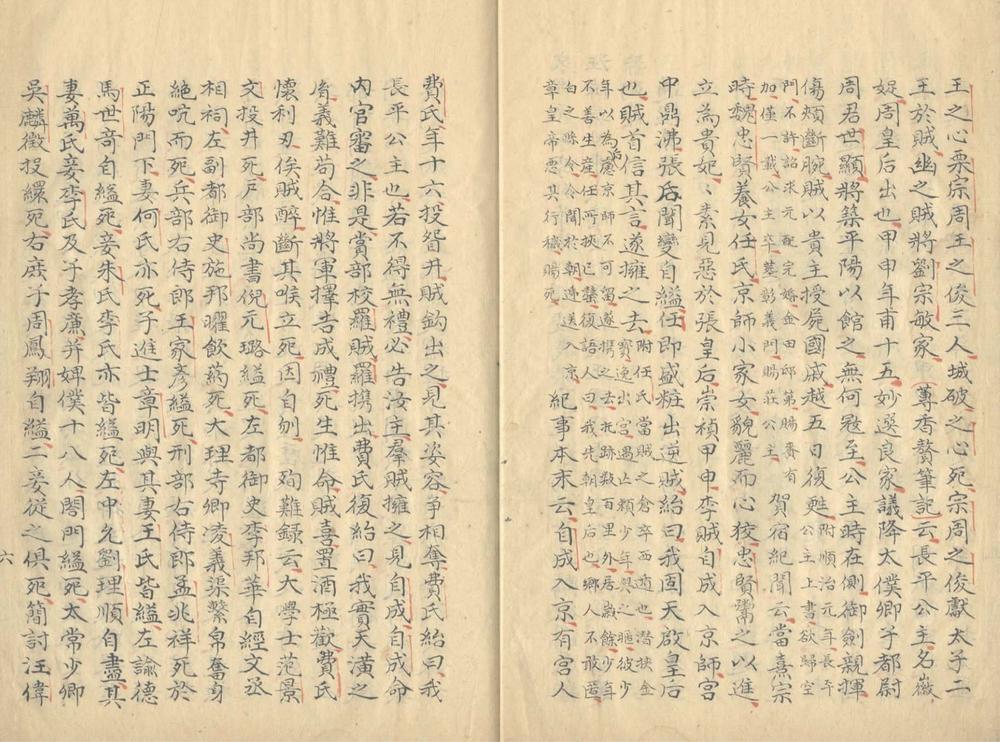 王之心票宗周王之俊三人城破之心死宗周之俊獻太子二
王於賊幽之賊將劉宗敏家 蓴香贅筆記云長平公主名㜲
娖周皇后出也甲申年甫十五妙選良家議降太僕卿子都尉
周君世顯將築平陽以館之無何冦至公主時在側御劍親揮
傷頰斷腕賊以貴主授屍國戚越五日復甦附順治元年長平
公主上書欲歸空
門不許詔求元配完婚金田邱第賜賚有
加僅一載公主卒墓彰義門賜莊公主 賀宿紀聞云當熹宗
時魏忠賢養女任氏京師小家女貌麗而心狡忠賢鬻之以進
立為貴妃〻素見惡於張皇后崇禎甲申李賊自成入京師宮
中鼎沸張后聞變自縊任即盛粧出逆賊紿曰我固天啟皇后
也賊首信其言遂擁之去附任氏當賊之倉卒西遁也潛挾金
寳逸出宮遇亡賴少年與之暱彼少
年以為慮京師不可留遂携之去托跡數百里外居歲餘少年
不善生產任所挾已罄復語人曰我先朝皇后也鄉人不敢匿
白之縣令令聞於朝逓送入京
章皇帝惡其行穢賜死 紀事本末云自成入京有宮人
費氏年十六投眢井賊鈎出之見其姿容爭相奪費氏紿曰我
長平公主也若不得無禮必告汝主羣賊擁之見自成自成命
內官審之非是賞部校羅賊羅携出費氏復紿曰我實天潢之
胤義難苟合惟將軍擇吉成禮死生惟命賊喜置酒極歡費氏
懷利刃俟賊醉斷其喉立死因自刎 殉難錄云大學士范景
文投井死戶部尚書倪元璐縊死左都御史李邦華自經文丞
相祠左副都御史施邦曜飲药死大理寺卿凌義渠繫帛奮身
絶吭而死兵部右侍郎王家彥縊死刑部右侍郎孟兆祥死於
正陽門下妻何氏亦死子進士章明與其妻王氏皆縊左諭德
馬世奇自縊死妾朱氏李氏亦皆縊死左中允劉理順自盡其
妻萬氏妾李氏及子孝廉并婢僕十八人闔門縊死太常少卿
吳麟徵投繯死右庶子周鳳翔自縊二妾從之俱死簡討汪偉
六